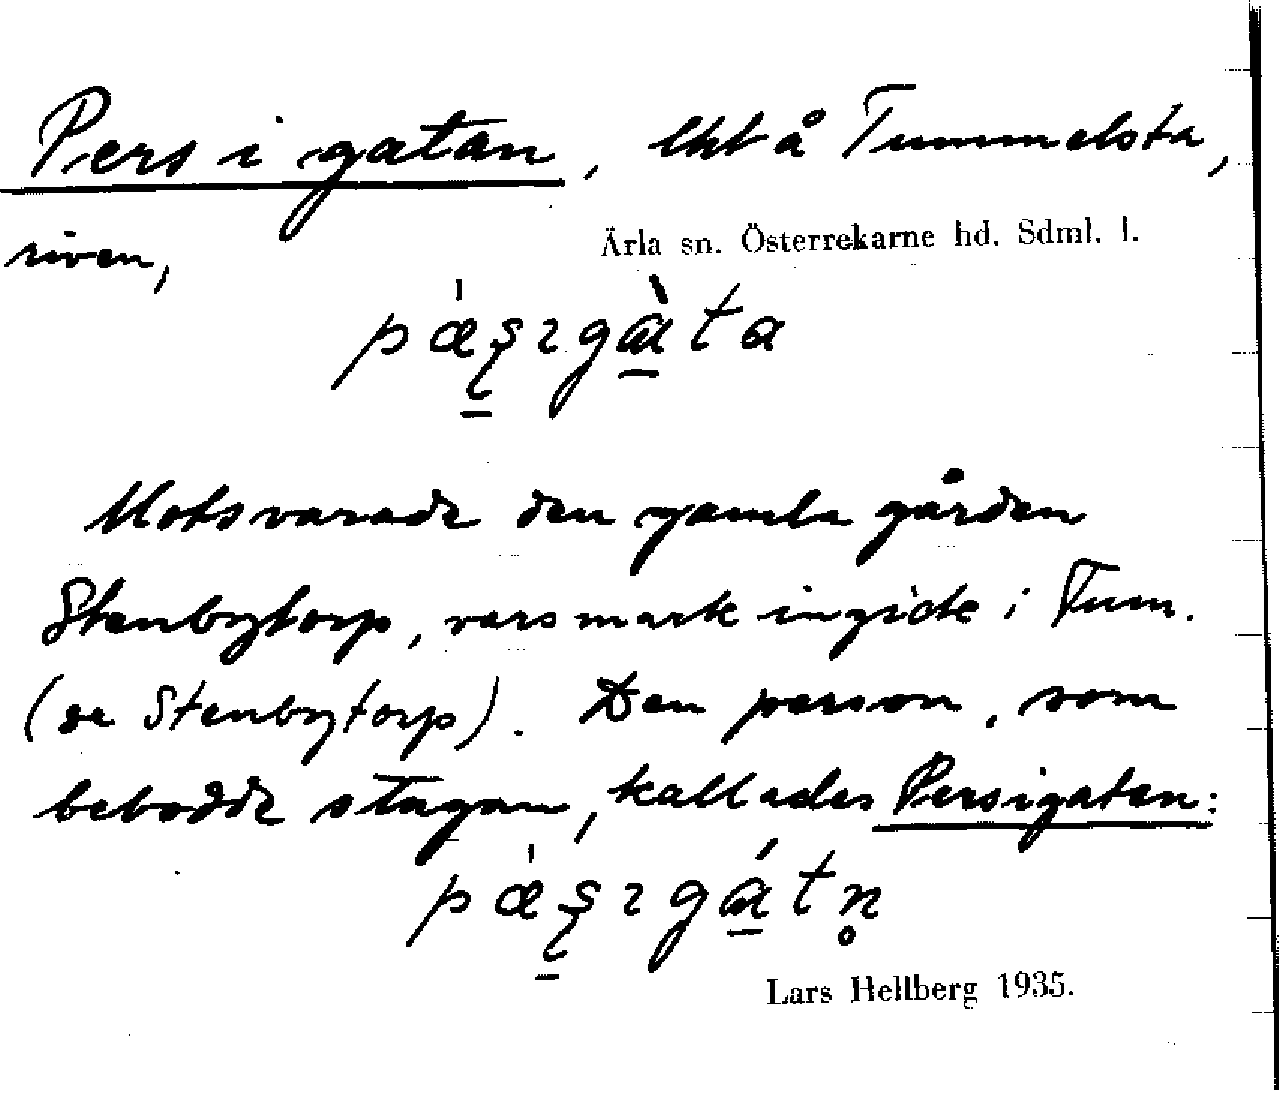 Pers i gatan, lht å Tummelsta,
riven,
Ärla sn. Österrekarne hd. Sdml. l.
Motsvarade den gamla gården
Stenbytorp, vars mark ingick i Tum.
(se Stenbytorp). Den person, som
bebodde stugan, kallades Persigatan:
Lars Hellberg 1935.